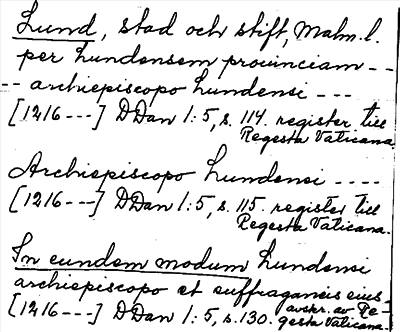 Lund, stad och stift, Malm. l.
per Lundensem prouinciam - -
- - archiepiscopo Lundensi - - -
[1216 - - -] DDan 1:5, s. 114. register till
Regesta Vaticana.
Archiepiscopo Lundensi - - - -
[1216 - - -] DDan 1:5, s. 115, register till
Regesta Vaticana.
In eundem modum Lundensi
archiepiscopo et suffraganeis eius.
[1216 - - -] DDan 1:5, s. 130. avskr. av Re-
gesta Vaticana.